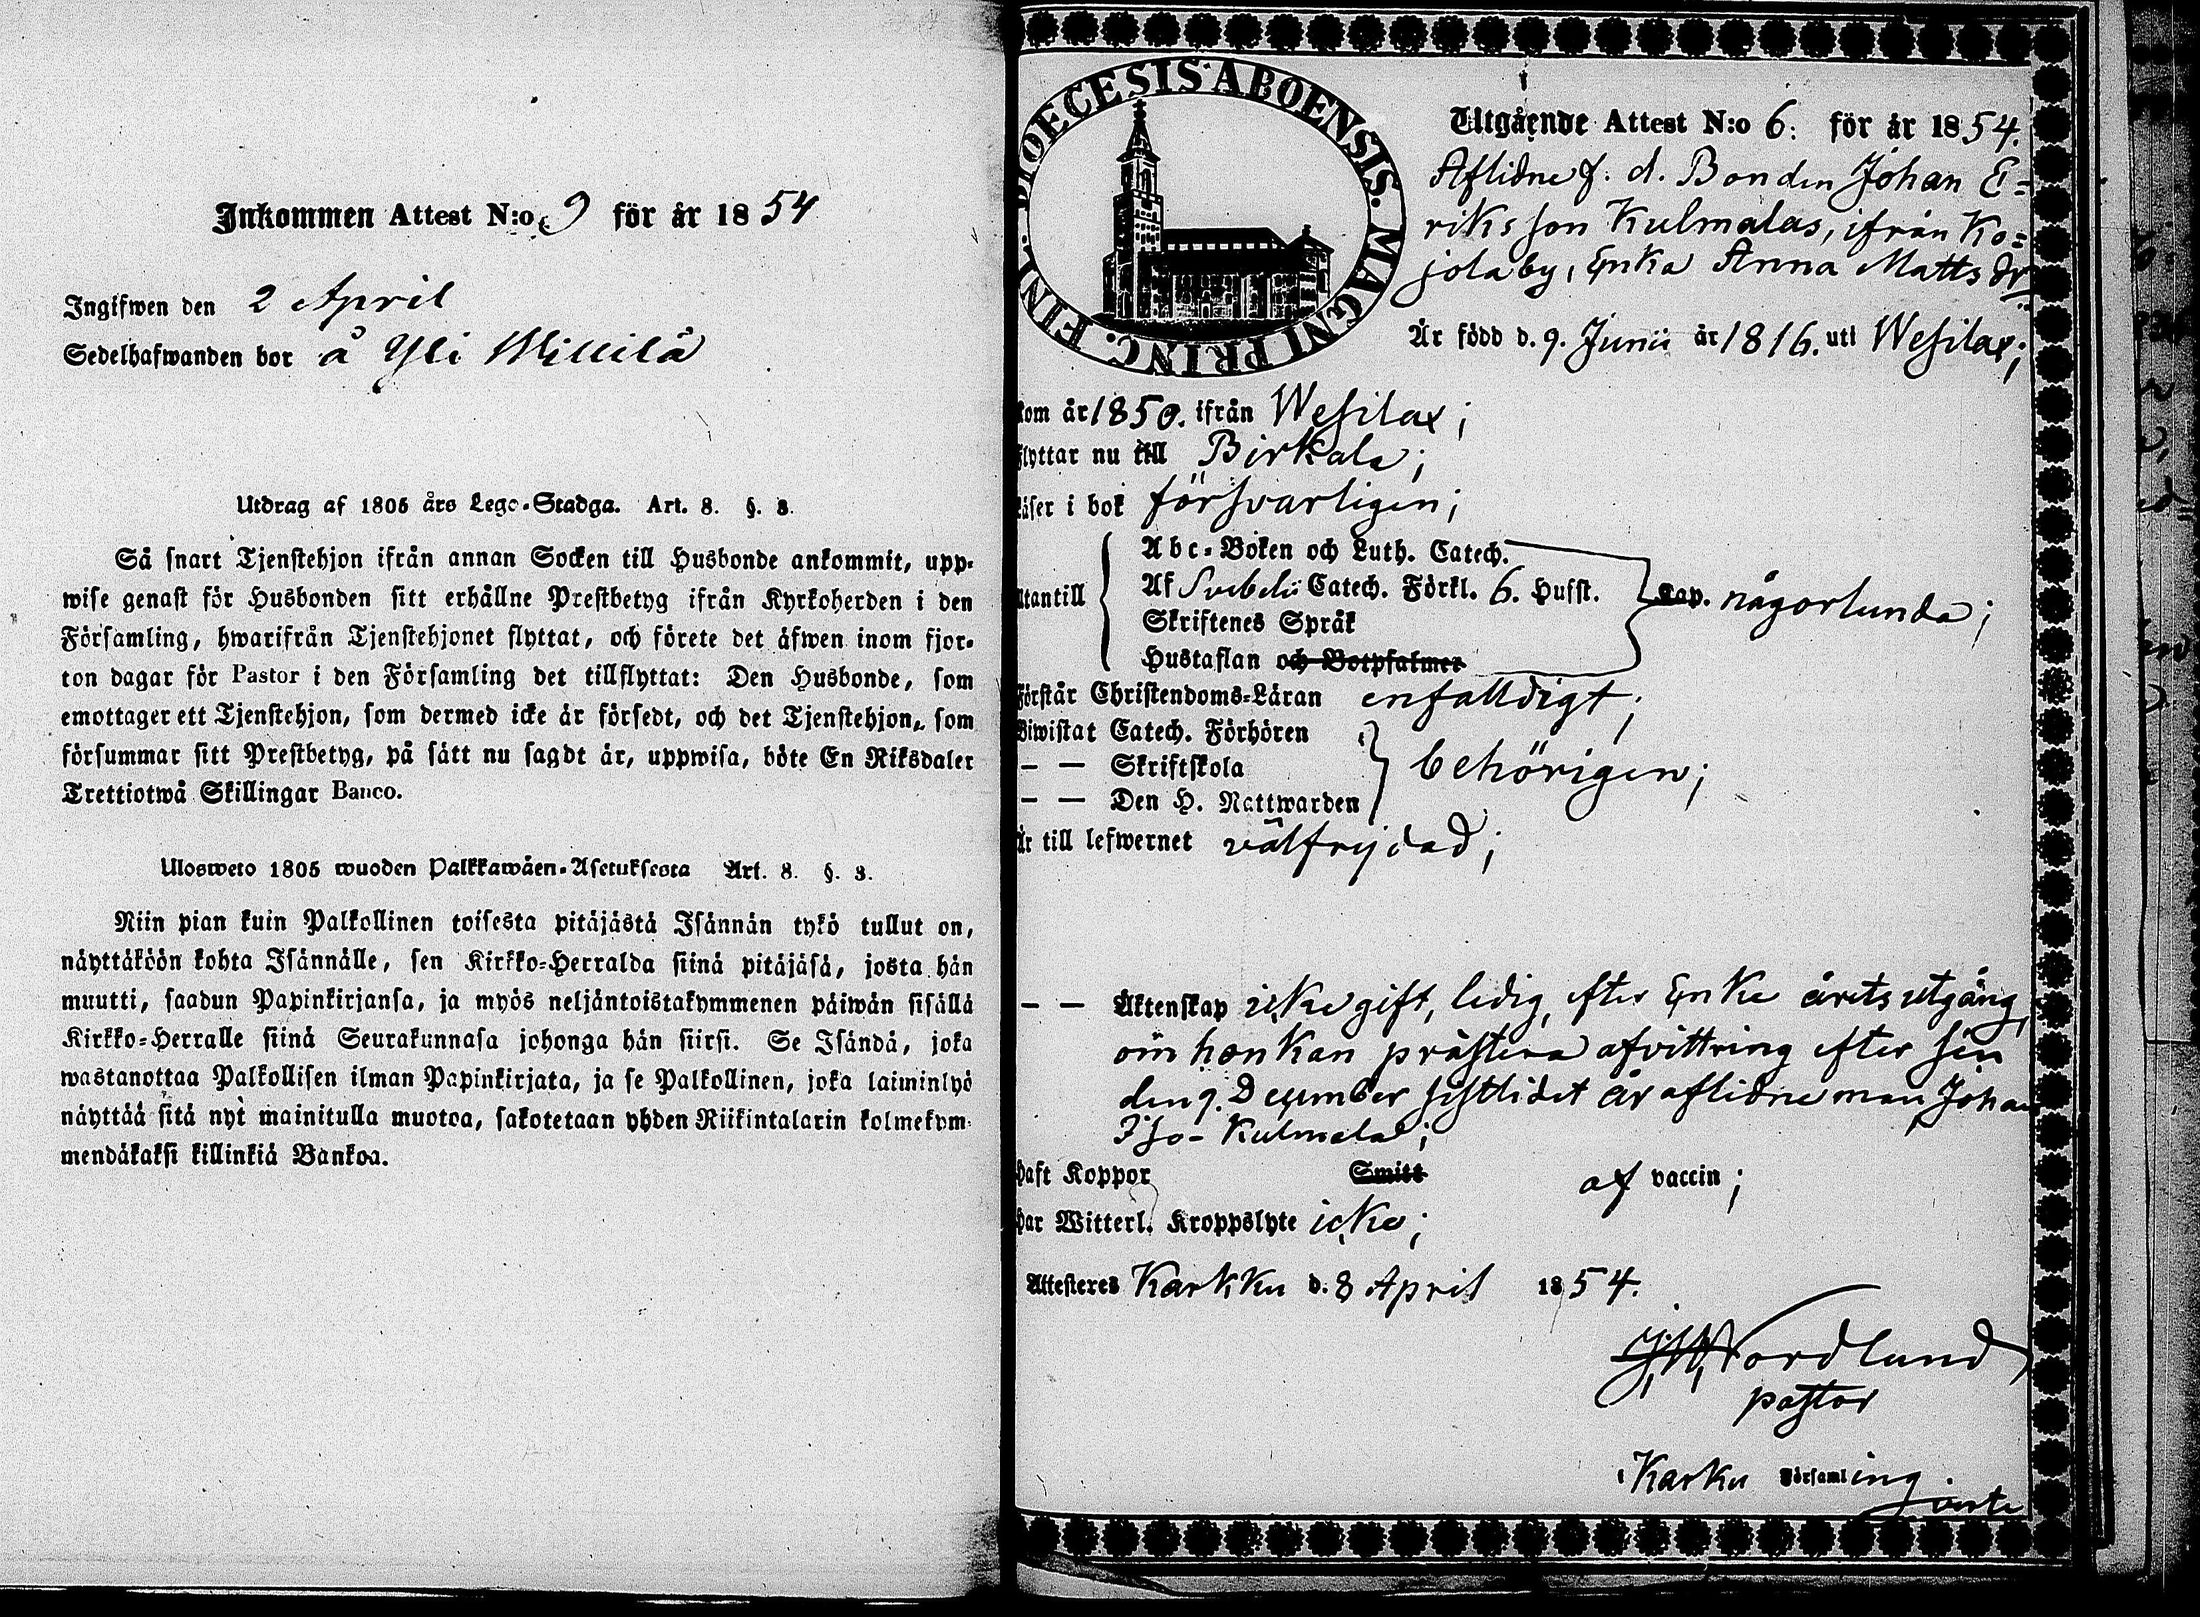 Inkommen Attest N:o 9 för år 1854
Ingifwen den 2 April
Sedelhafwanden bor å Yli Willilä
Utdrag af 1805 års Lego-Stadga. Art. 8. §. 3.
Så snart Tjenstehjon ifrån annan Socken till Husbonde ankommit, upp-
wise genast för Husbonden sitt erhållne Prestbetyg ifrån Kyrkoherden i den
Församling, hwarifrån Tjenstehjonet flyttat, och förete det äfwen inom fjor-
ton dagar för Pastor i den Församling det tillflyttat: Den Husbonde, som
emottager ett Tjenstehjon, som dermed icke är försedt, och det Tjenstehjon, som
försummar sitt Prestbetyg, på sätt nu sagdt är, uppwisa, böte En Riksdaler
Trettiotwå Skillingar Banco.
Ulosweto 1805 wuoden Palkkawäen-Asetuksesta Art. 8. §. 3.
Niin pian kuin Palkollinen toisesta pitäjästä Isännän tykö tullut on,
näyttäköön kohta Isännälle, sen Kirkko-Herralda siinä pitäjäsä, josta hän
muutti, saadun Papinkirjansa, ja myös neljäntoistakymmenen päiwän sisällä
Kirkko-Herralle siinä Seurakunnasa johonga hän siirsi. Se Isändä, joka
wastanottaa Palkollisen ilman Papinkirjata, ja se Palkollinen, joka laiminlyö
näyttää sitä nyt mainitulla muotoa, sakotetaan yhden Riikintalarin kolmekym-
mendäkaksi killinkiä Bankoa.
DIOECESIS ABOENSIS. MAGNI PRINC. FINL.
Utgående Attest N:o 6. för år 1854.
Aflidne f. d. Bonden Johan E=
riksson Kulmalas, ifrån Ko=
jola by, Enka Anna Mattsdr
Är född d. 9. Junii år 1816. uti Wesilax;
kom år 1850. ifrån Wesilax;
flyttar nu till Birkala;
läser i bok försvarligen;
Utantill
Abc-Boken och Luth. Catech.
Af Svebelii Catech. Förkl. 6. Hufst. Cap. någorlunda;
Skriftenes Språk
Hustaflan och Botpsalmer
Förstår Christendoms-Läran enfalldigt;
Biwistat Catech. Förhören
— — Skriftskola behörigen;
— — Den H. Nattwarden
Är till lefwernet välfrejdad;
— — Äktenskap icke gift, ledig, efter Enke årets utgång,
om hon kan prästera afvittring efter sin
den 9. December sistlidet år aflidne man Johan
Iso-Kulmala;
Haft Koppor Smitt af vaccin;
Har Witterl. Kroppslyte icke;
Attesteres Karkku d. 8 April 1854.
Nordlund
pastor
i Karku Församling.